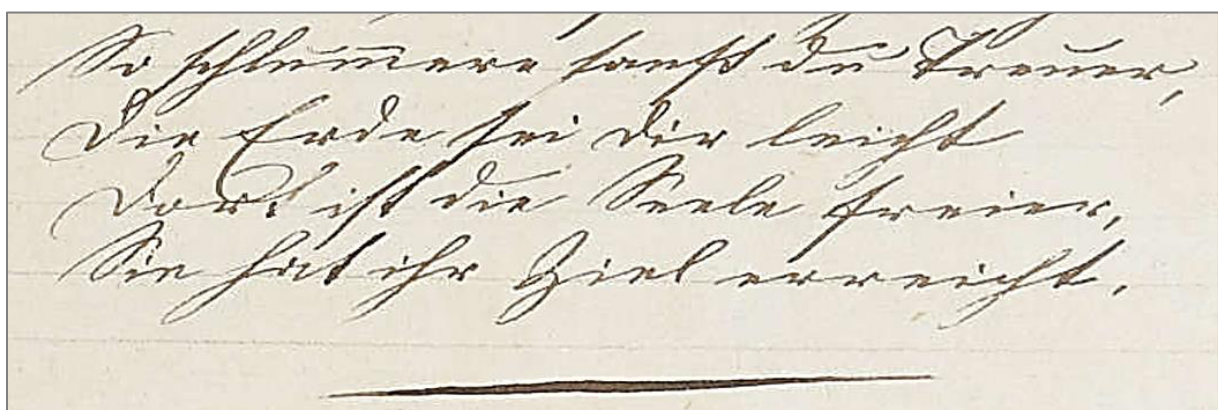 So schlum̅ere sanft du Treuer,
Die Erde sei dir leicht
Dort ist die Seele freier,
Sie hat ihr Ziel erreicht.